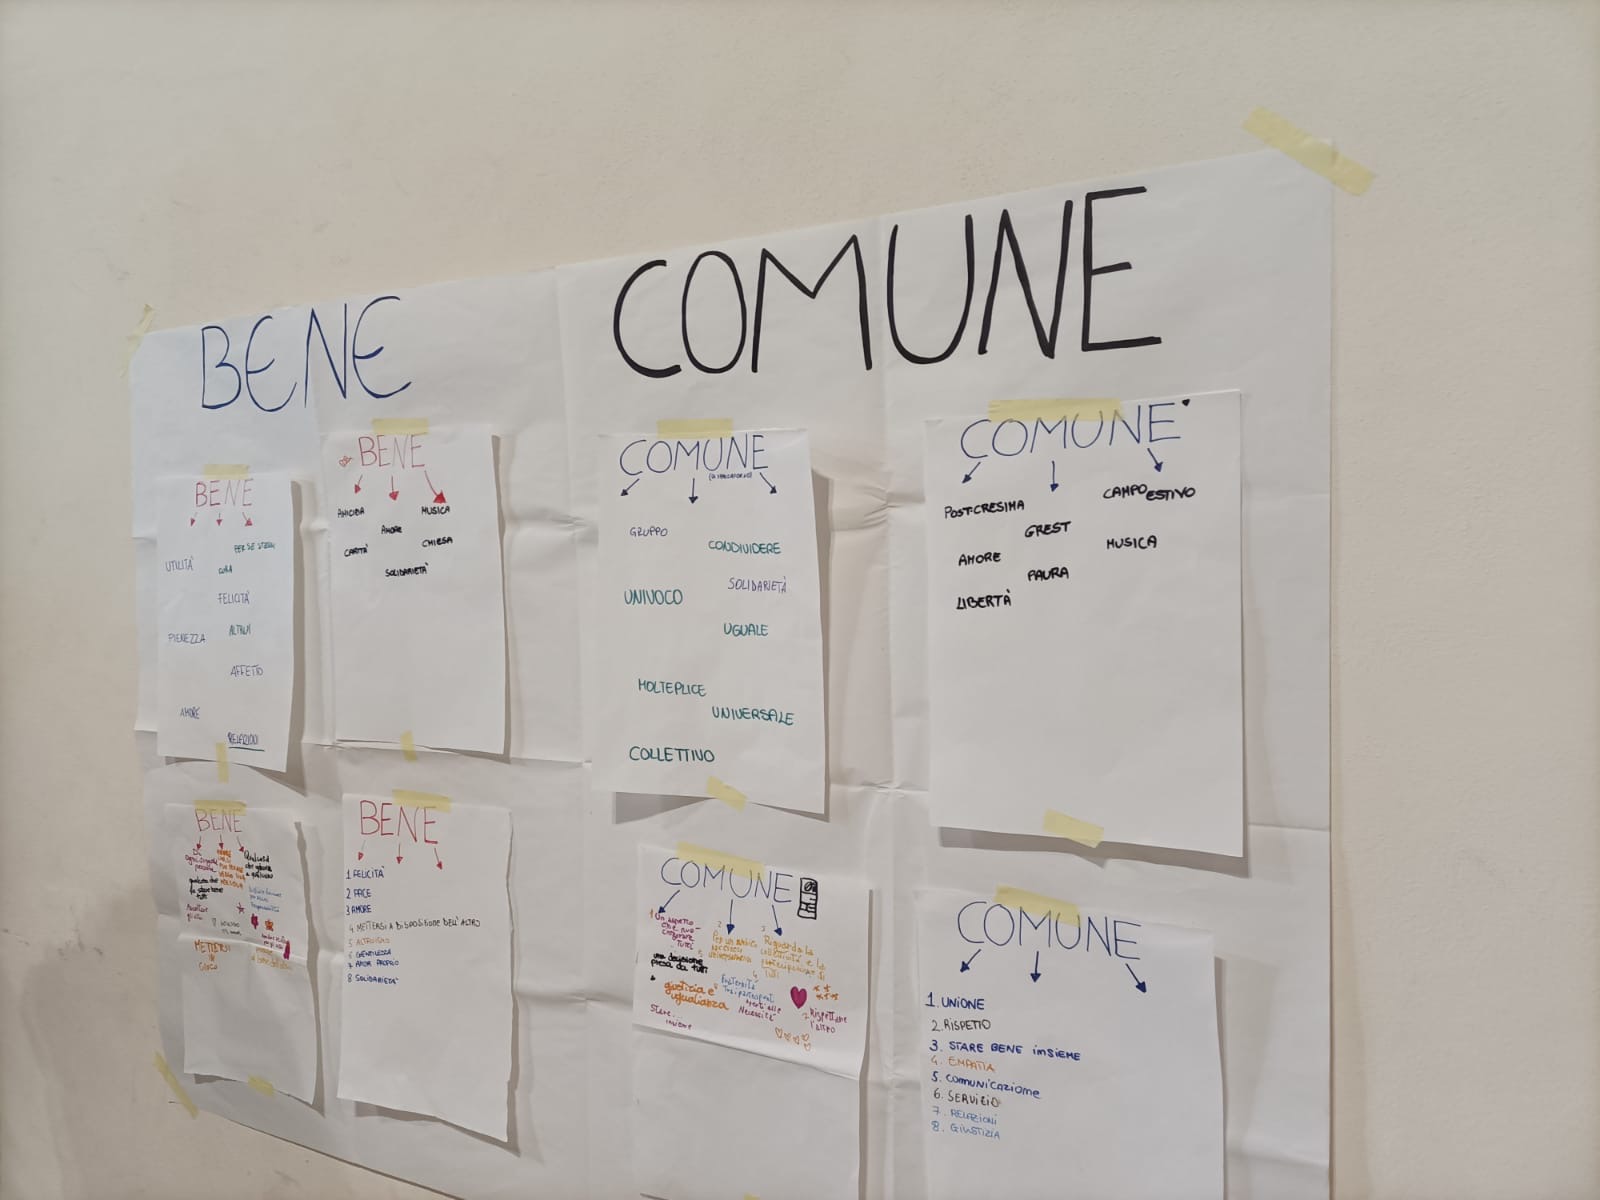 BENE
COMUNE
BENE
UTILITÀ
PER SE STESSI
CURA
FELICITÀ
PIENEZZA
ALTRUI
AFFETTO
AMORE
RELAZIONI
BENE
AMICIZIA
MUSICA
AMORE
CARITÀ
CHIESA
SOLIDARIETÀ
COMUNE
GRUPPO
CONDIVIDERE
SOLIDARIETÀ
UNIVOCO
UGUALE
MOLTEPLICE
UNIVERSALE
COLLETTIVO
COMUNE
POST-CRESIMA
CAMPO ESTIVO
GREST
AMORE
MUSICA
PAURA
LIBERTÀ
BENE
qualcosa che
fa stare bene
tutti
METTERSI
IN
GIOCO
BENE
1 FELICITÀ
2 PACE
3 AMORE
4 METTERSI A DISPOSIZIONE DELL'ALTRO
5 ALTRUISMO
6 GENTILEZZA
7 AMOR PROPRIO
8 SOLIDARIETÀ
COMUNE
1 Un aspetto
che può
tutti
una decisione
presa da tutti
giustizia e
uguaglianza
Stare...
insieme
3 Riguarda la
collettività e la
partecipazione di
tutti
Fraternità
Necessità
7 Rispettare
l'altro
COMUNE
1. UNIONE
2. RISPETTO
3. STARE BENE insieme
4. EMPATIA
5. comunicazione
6. SERVIZIO
7. RELAZIONI
8. GIUSTIZIA